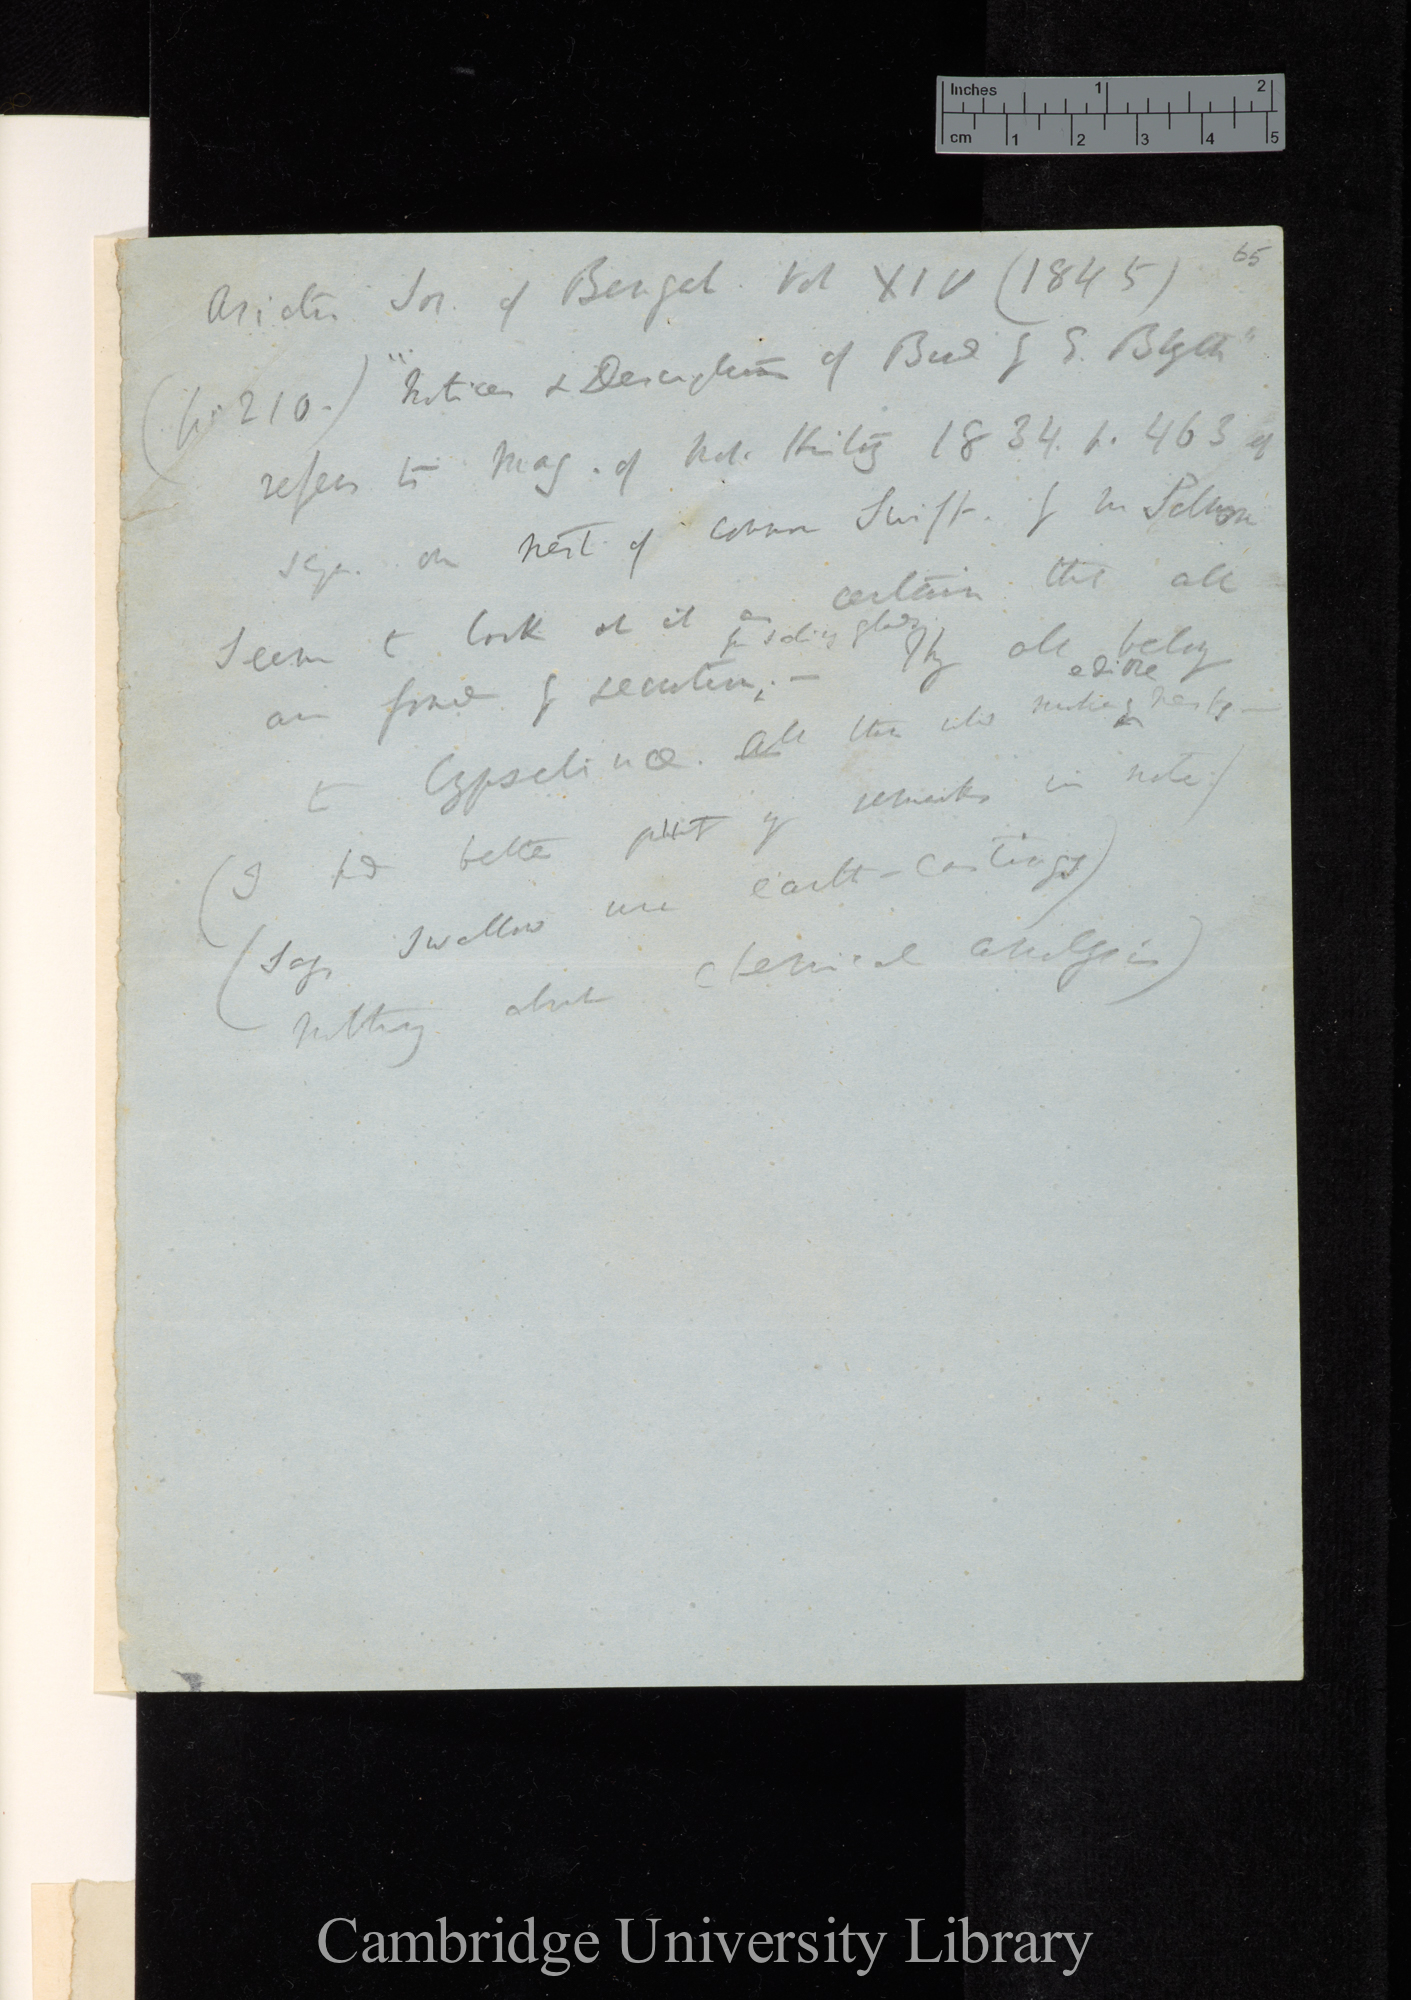 Inches 1 2
cm 1 2 3 4 5
65
Asiatic Soc. of Bengal. Vol XIV (1845)
(p. 210.) "Notices & Descriptions of Birds by E. Blyth"
refers to Mag. of Nat. History 1834. p. 463 of
on nest of common Swift. by Mr Salmon
Seems to look at it as certain that all
by salivary glands
are formed by secretion; — They all belong
edible
to Cypselinæ. All the making nests —
(I had better of remarks in note)
(Says Swallow use earth-castings)
nothing about chemical analysis)
Cambridge University Library